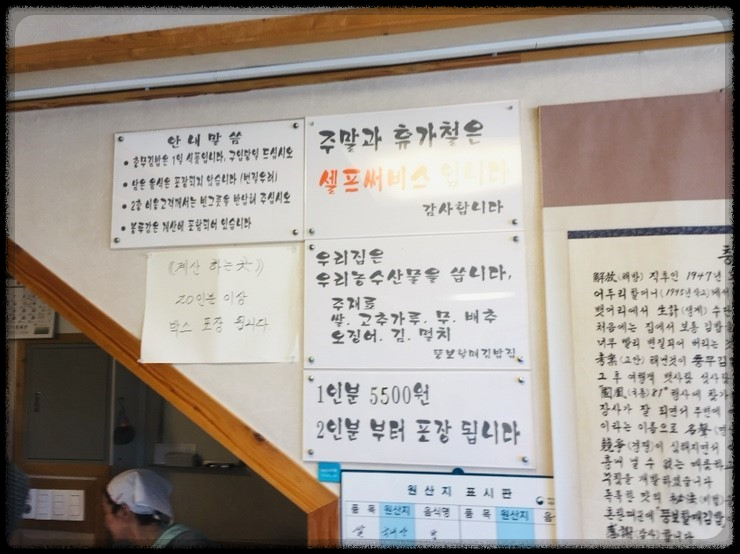 안내말씀
• 충무김밥은 1일 식품입니다, 구입당일 드십시오
• 남은 음식은 포장되지 않습니다 (변질우려)
• 2층 이용고객께서는 빈그릇을 반납해 주십시오
• 봉투값은 계산에 포함되어 있습니다
주말과 휴가철은
셀프써비스 입니다
감사합니다
《계산 하는곳》
20인분 이상
박스 포장 됩니다
우리집은
우리농수산물을 씁니다,
주재료
쌀. 고추가루. 무. 배추
오징어. 김. 멸치
뚱보할매김밥집
1인분 5500원
2인분 부터 포장 됩니다
원산지 표시판
품 목 원산지 음식명 품 목 원산지 음식
쌀 국내산
解放(해방) 직후인 1947년
어두리 할머니(1995년 작고)께서
뱃머리에서 生計(생계) 수단
처음에는 집에서 보통 김밥을
너무 빨리 변질되어 버리는
考案(고안) 해낸것이 충무김
그 후 여행객 뱃사람
"國風(국풍)81" 행사에 참가
장사가 잘 되면서 주변에
이라는 이름으로 名聲
競爭(경쟁)이 심해지면서
흉내 낼 수 없는 매콤하고
무침을 개발하였습니다
독특한 맛의 秘法(비법)
뚱보할매김밥